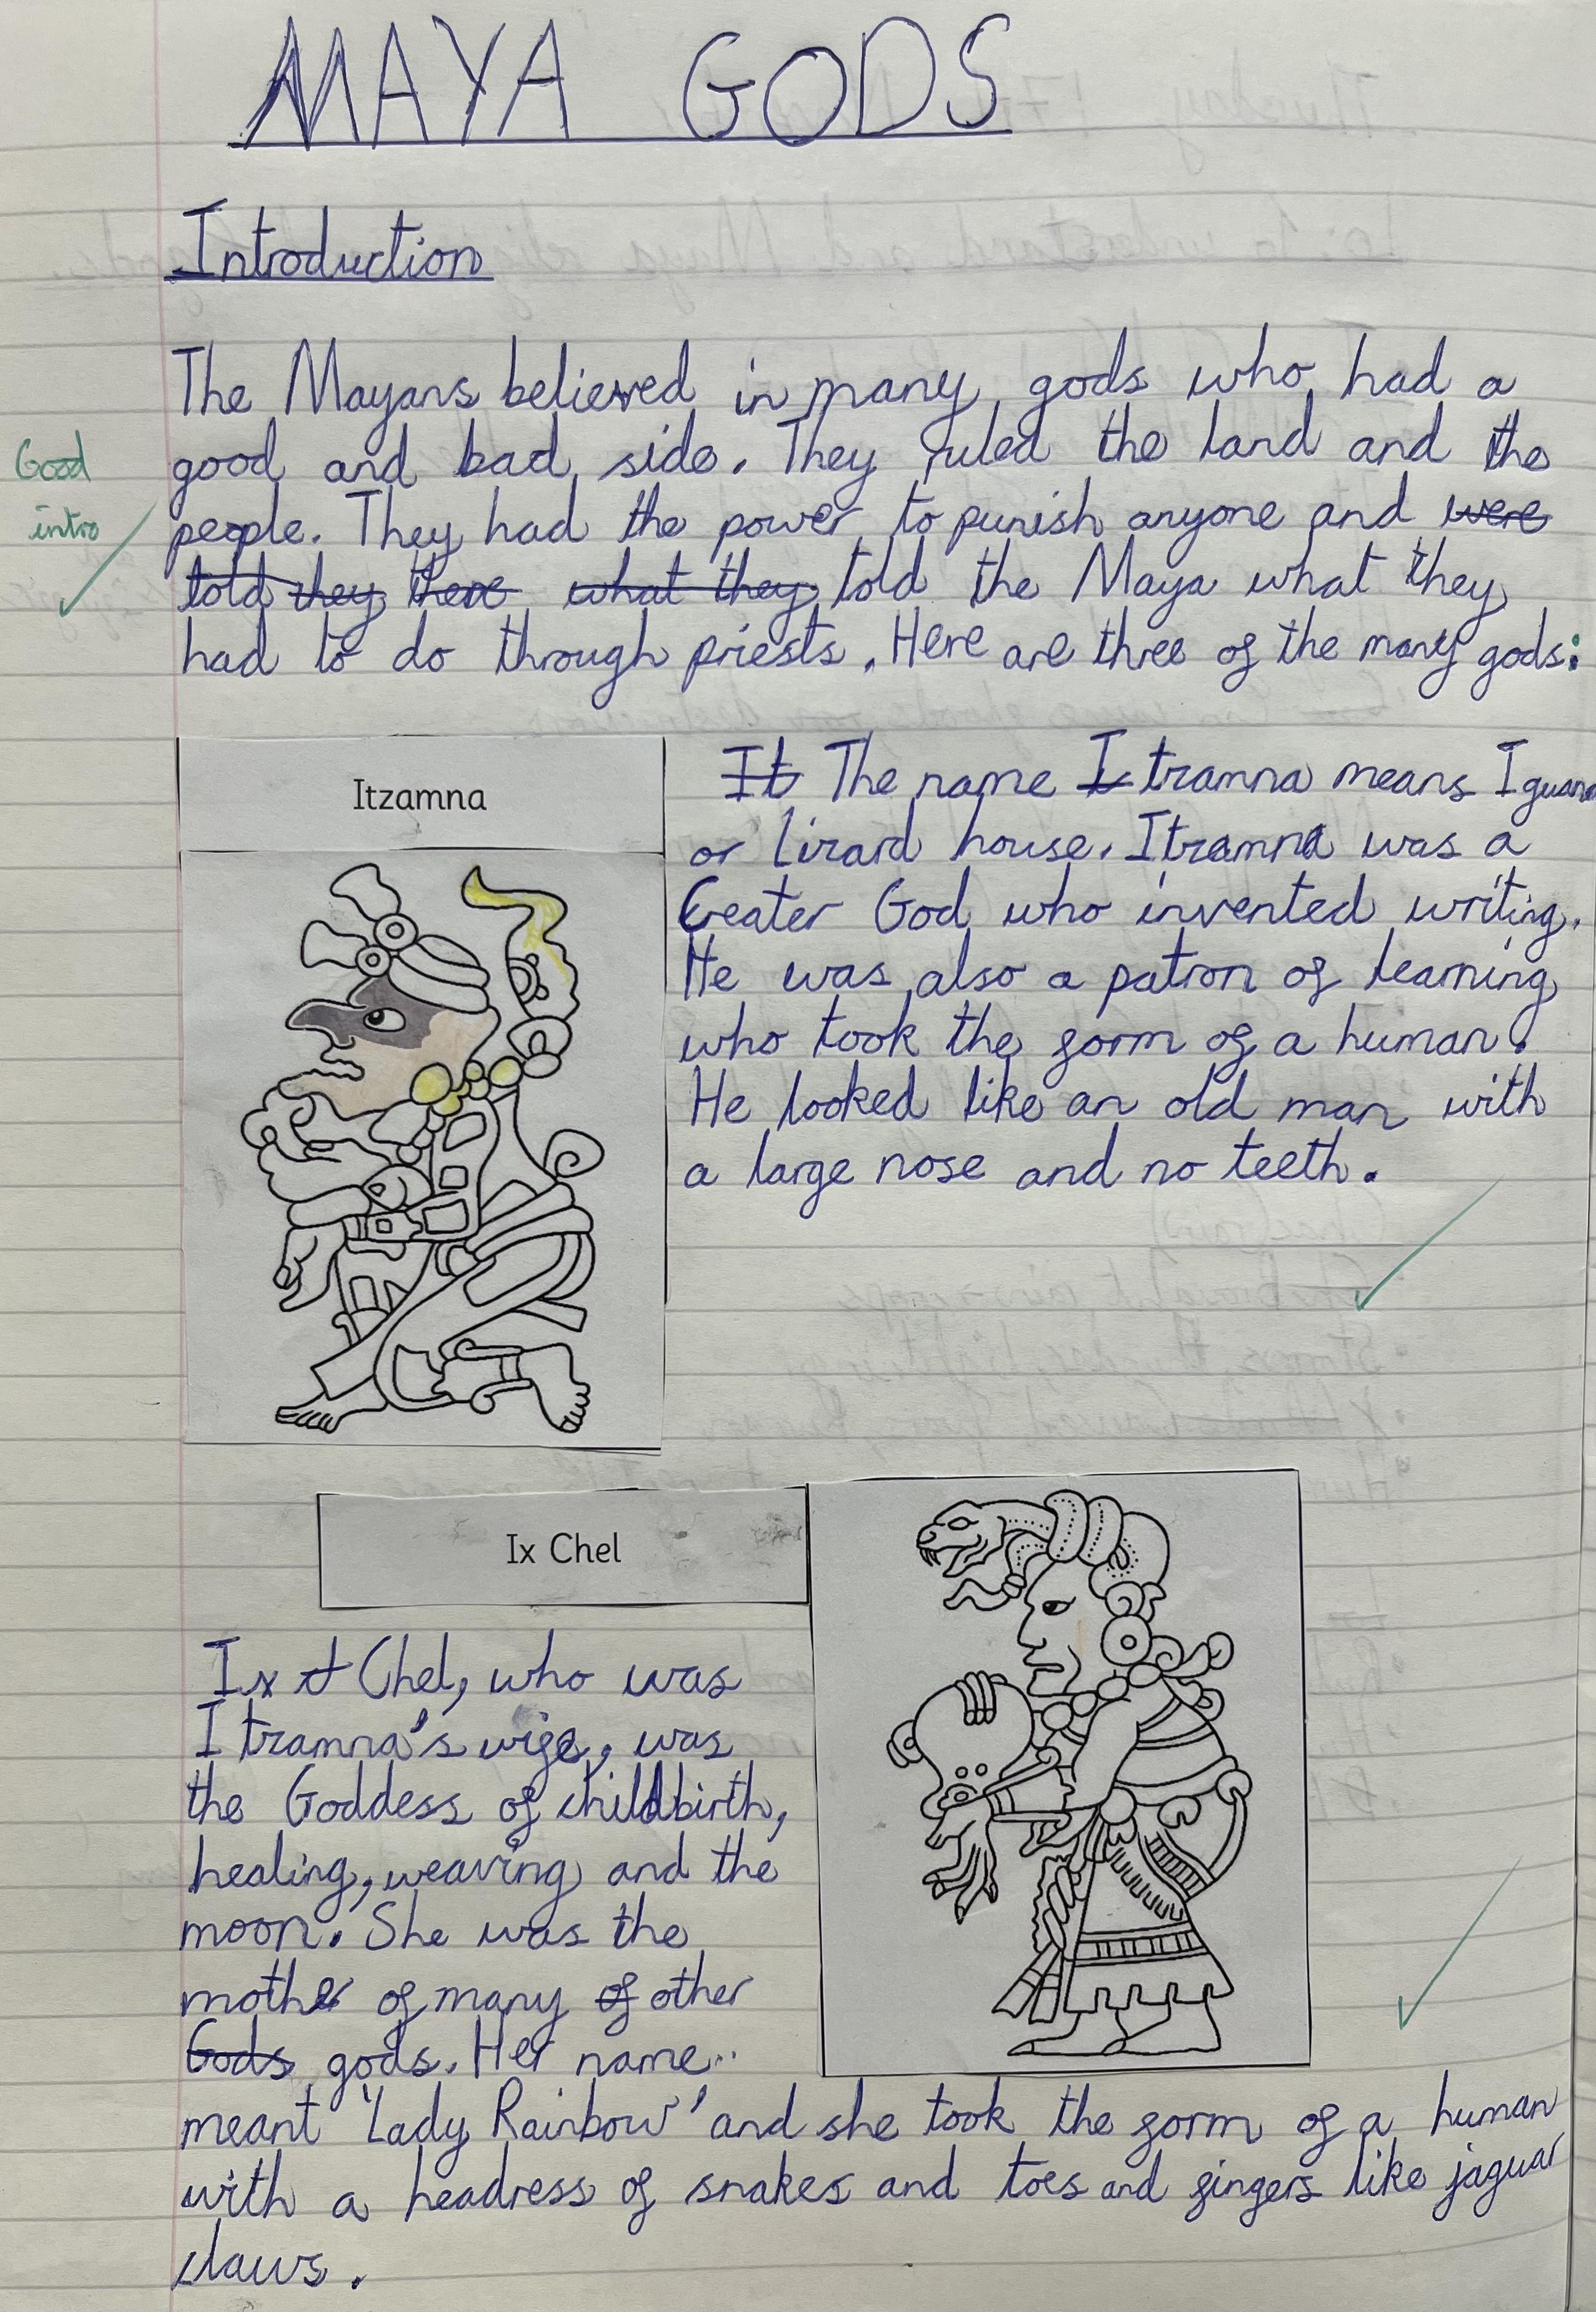 MAYA GODS
Introduction
The Mayans believed in many gods who had a
good and bad side. They ruled the land and the
people. They had the power to punish anyone and were
told they there what they told the Maya what they
had to do through priests. Here are three of the many gods:
Good
intro
Itzamna
It The name I tzamna means Iguana
or lizard house. Itzamna was a
Creater God who invented writing.
He was also a patron of learning
who took the form of a human.
He looked like an old man with
a large nose and no teeth.
Ix Chel
Ix Chel, who was
Itzamna's wife, was
the Goddess of childbirth,
healing, weaving and the
moon. She was the
mother of many of other
Gods gods. Her name
meant 'Lady Rainbow' and she took the form of a human
with a headress of snakes and toes and fingers like jaguar
claws.